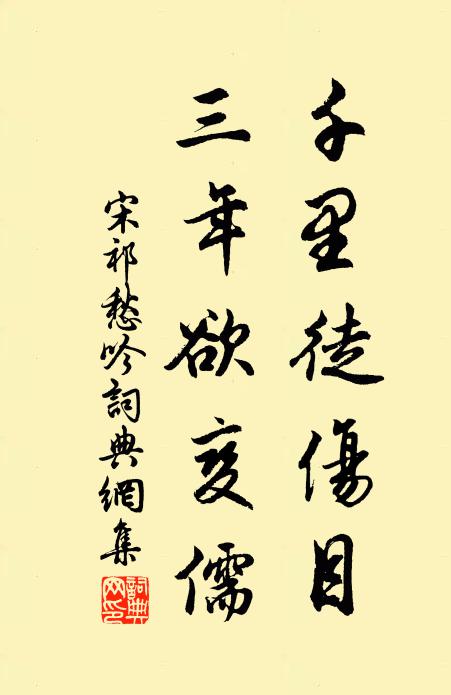 千里徒傷目
三年欲变儒
宋祁愁吟詞典網集
詞典网印